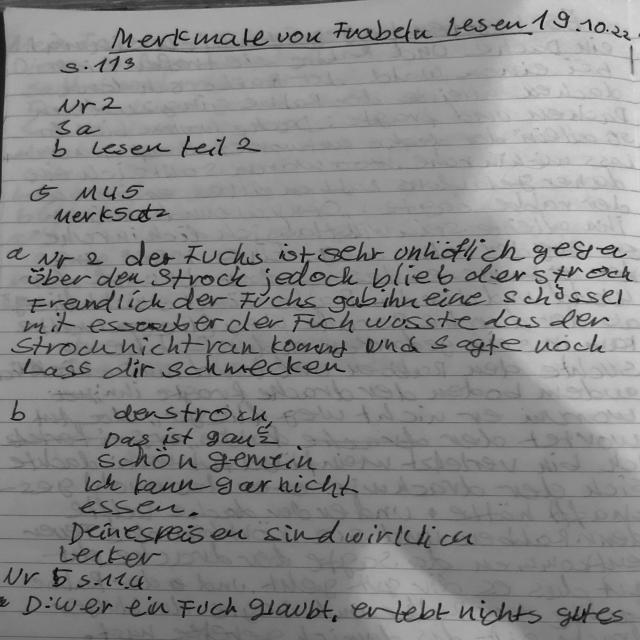 Merkmale von Frabeln Lesen 19.10.22
S.113
Nr 2
3a
b Lesen teil 2
M45
Merksatz
a Nr 2 der Fuchs ist sehr unhöflich gegen
über den Strock jedoch blieb der strock
Freundlich der Fuchs gab ihn eine schössel
mit essen aber der Fuch wosste das der
Stroch nicht ran kommt und sagte noch
Lass dir schmecken
b den stroch
Das ist ganz
schön gemein
Ich kann gar nicht
essen.
Deine speisen sind wirklich
Lecker
Nr 5 S.114
D: wer ein Fuch glaubt, erlebt nichts gutes